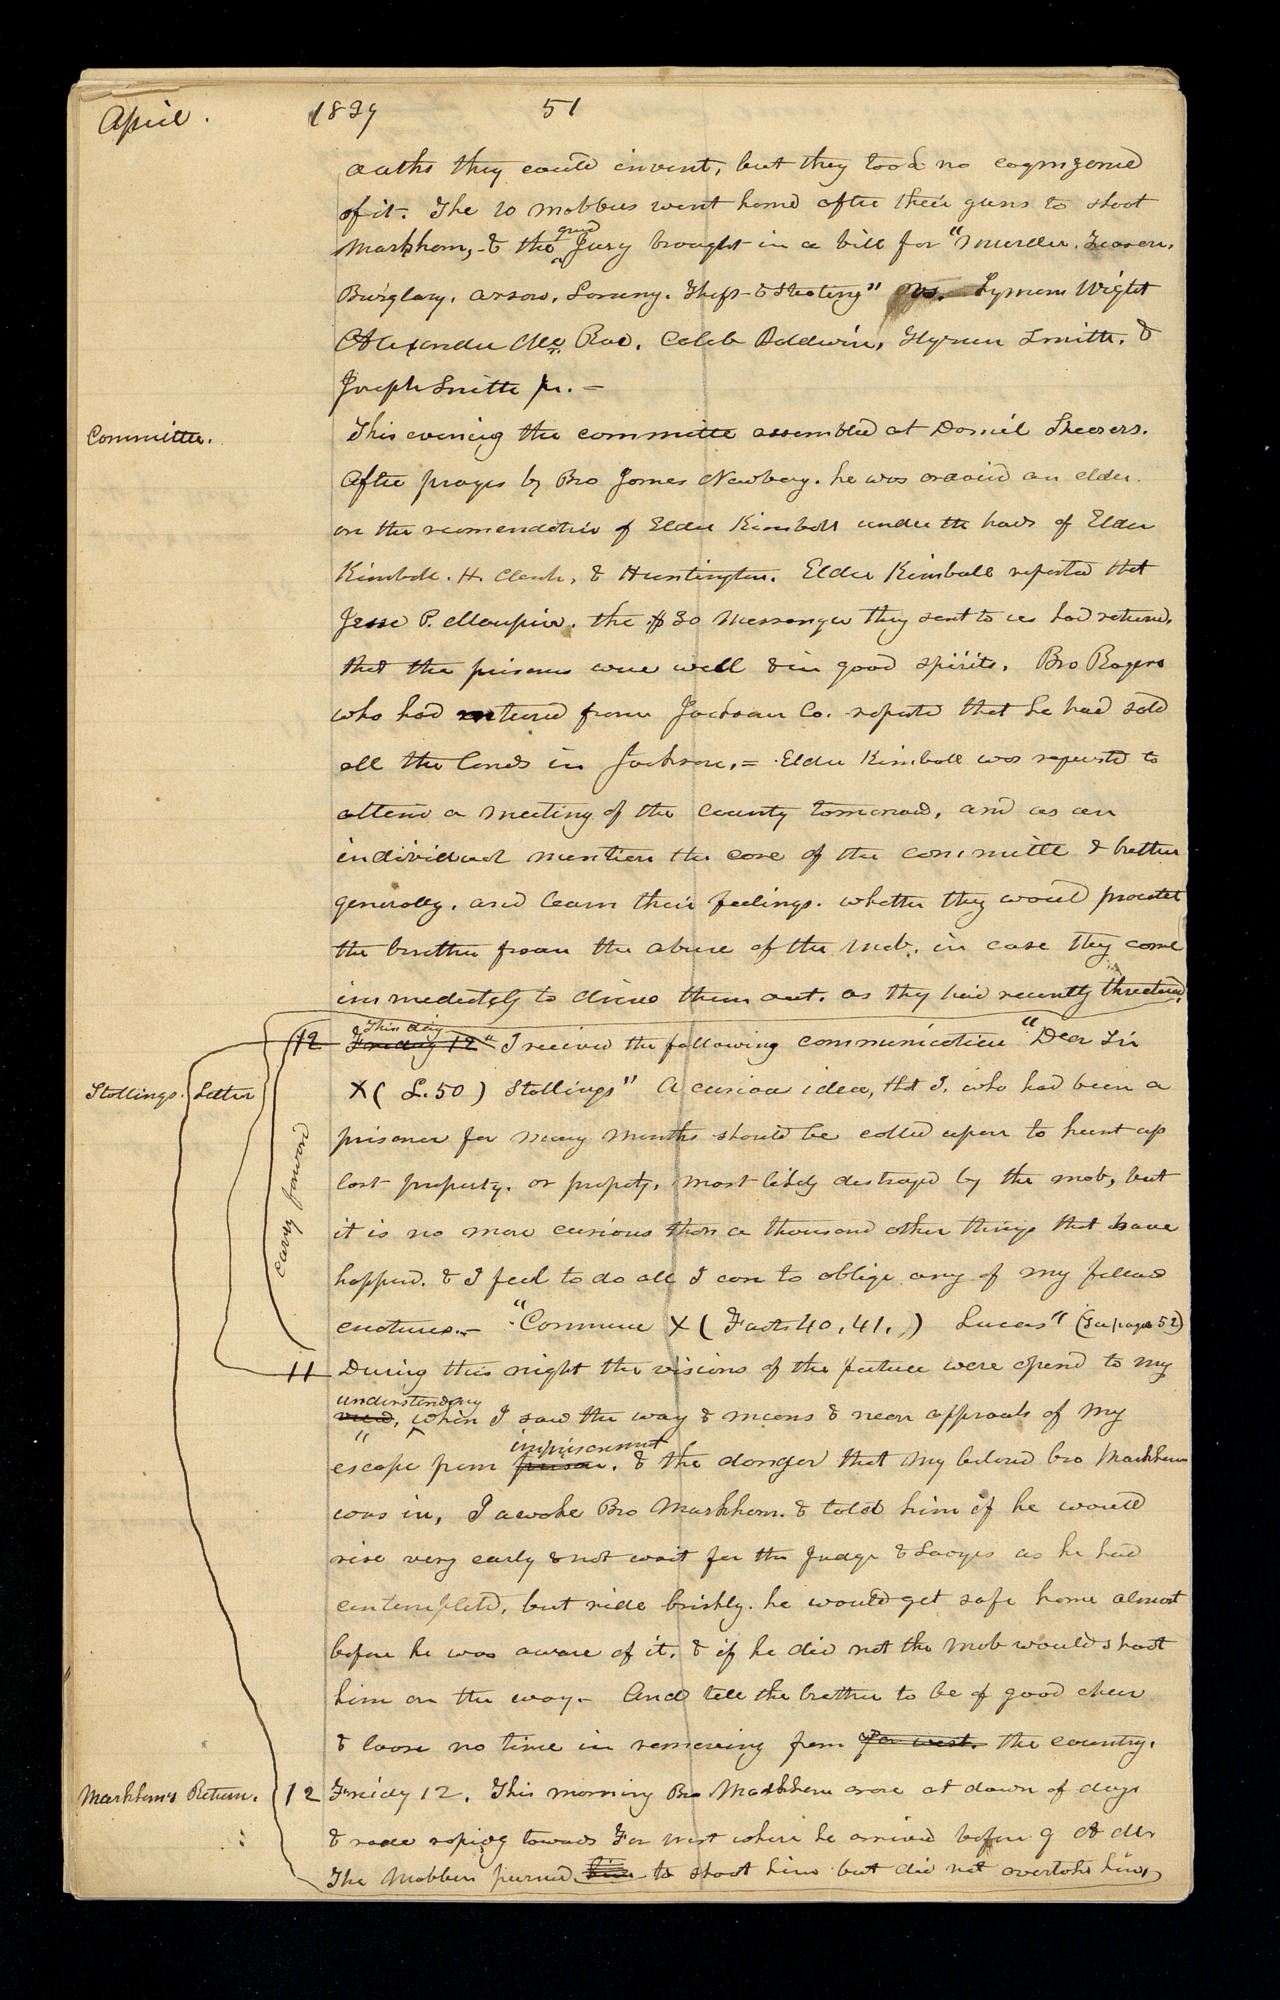 April. 1839 51
oaths they could invent, but they took no cognizance
of it. The 10 mobbers went home after their guns to shoot
Markham, & the grand Jury brought in a bill for "Murder, Treason,
Burglary, arson, Larceny, Theft & Stealing" vs. Lyman Wight
Alexander Mc Rae, Caleb Baldwin, Hyrum Smith, &
Joseph Smith Jr. —
Committee. This evening the committee assembled at Daniel Shearers.
After prayer by Bro James Newbery. he was ordaind an elder.
on the recomendation of Elder Kimball under the hands of Elder
Kimball. H. Clark, & Huntington. Elder Kimball reported that
Jesse P. Maupin. the $30 Messenger they sent to us had returned,
that the prisoners were well & in good spirits. Bro Rogers
who had returned from Jackson Co. reported that he had sold
all the lands in Jackson. = Elder Kimball was requested to
attend a meeting of the county tomorrow, and as an
individual mention the case of the committee & brethren
generally. and learn their feelings. whether they would proctect
the brethren from the abuse of the mob, in case they come
immediately to drive them out. as they had recently threatened.
12 Friday 12" This day I recieved the following communication "Dear Sir
Stollings. Letter X ( L. 50 ) Stollings" A curious idea, that I, who had been a
prisoner for many months should be called upon to hunt up
lost property. or propety, most likely destroyed by the mob, but
it is no more curious than a thousand other things that have
happend. & I feel to do all I can to oblige any of my fellow
creatures. — "Commune X ( Facts 40, 41. ) Lucas" (See page 52)
carry forward
11 During this night the visions of the future were opend to my
view, understanding when I saw the way & means & near approach of my
escape from prison. imprisonment & the danger that my beloved bro Markham
was in, I awoke Bro Markham. & told him if he would
rise very early & not wait for the Judge & Lawyers as he had
contemplated, but ride briskly. he would get safe home almost
before he was aware of it. & if he did not the mob would shoot
him on the way. — And tell the brethren to be of good cheer
& loose no time in removing from far west. the country.
Markham's Return. 12 Friday 12. This morning Bro Markham arose at dawn of day
& rode rapidly towards Far west where he arrived before 9
The Mobbers pursued him to shoot him but did not overtake him,